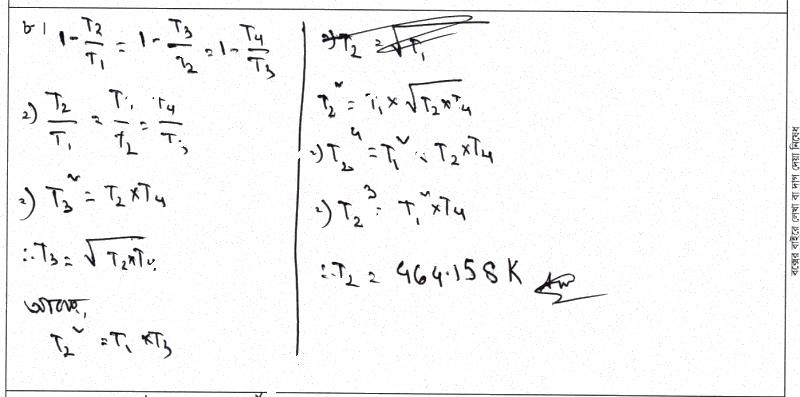 ৮। 1 - T₂/T₁ = 1 - T₃/T₂ = 1 - T₄/T₃
⇒) T₂/T₁ = T₃/T₂ = T₄/T₃
⇒) T₃² = T₂ × T₄
∴ T₃ = √(T₂ × T₄)
আবার,
T₂² = T₁ × T₃
T₂² = T₁ × √(T₂ × T₄)
⇒) T₂⁴ = T₁² × T₂ × T₄
⇒) T₂³ = T₁² × T₄
∴ T₂ = 464.158 K Ans
বক্সের বাইরে লেখা বা দাগ দেয়া নিষেধ